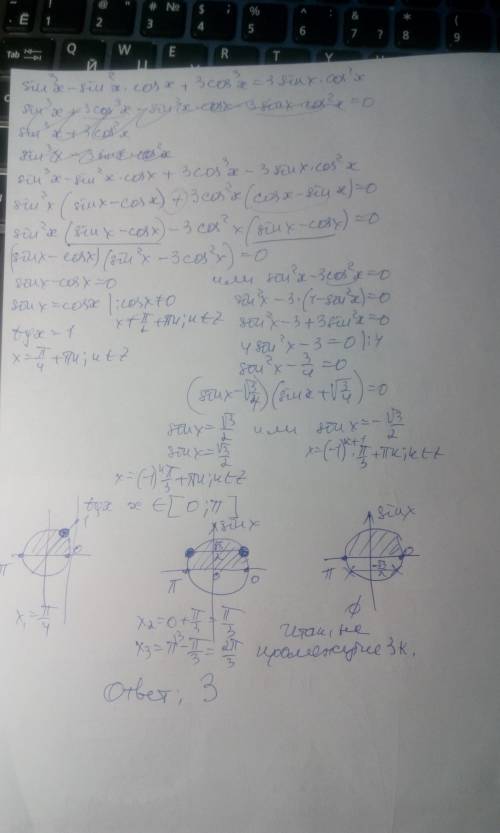 sin³x - sin²x · cosx + 3cos³x = 3 sinx · cos²x
sin³x + 3cos³x - sin²x · cosx - 3 sinx · cos²x = 0
sin³x + 3cos²x
sin³x - sin²x · cosx + 3cos³x - 3 sinx · cos²x
sin²x (sinx - cosx) + 3cos²x (cosx - sinx) = 0
sin²x (sinx - cosx) - 3cos²x (sinx - cosx) = 0
(sinx - cosx) (sin²x - 3cos²x) = 0
sinx - cosx = 0 или sin²x - 3cos²x = 0
sinx = cosx | : cosx ≠ 0 sin²x - 3 · (1 - sin²x) = 0
x ≠ π/2 + πn; n ∈ Z sin²x - 3 + 3sin²x = 0
tgx = 1 4 sin²x - 3 = 0 | : 4
x = π/4 + πn; n ∈ Z sin²x - 3/4 = 0
(sinx - √3/4) (sinx + √3/4) = 0
sinx = √3/2 или sinx = -√3/2
sinx = √3/2 x = (-1)ᵏ⁺¹ · π/3 + πк; к ∈ Z
x = (-1)ᵏ π/3 + πк; к ∈ Z
tgx x ∈ [0; π]
1 sinx sinx
√3/2
π 0 π 0 0 π 0
-√3/2
x₁ = π/4 ∅
x₂ = 0 + π/3 = π/3
x₃ = π - π/3 = 2π/3
Итак, на
промежутке 3 к.
Ответ: 3